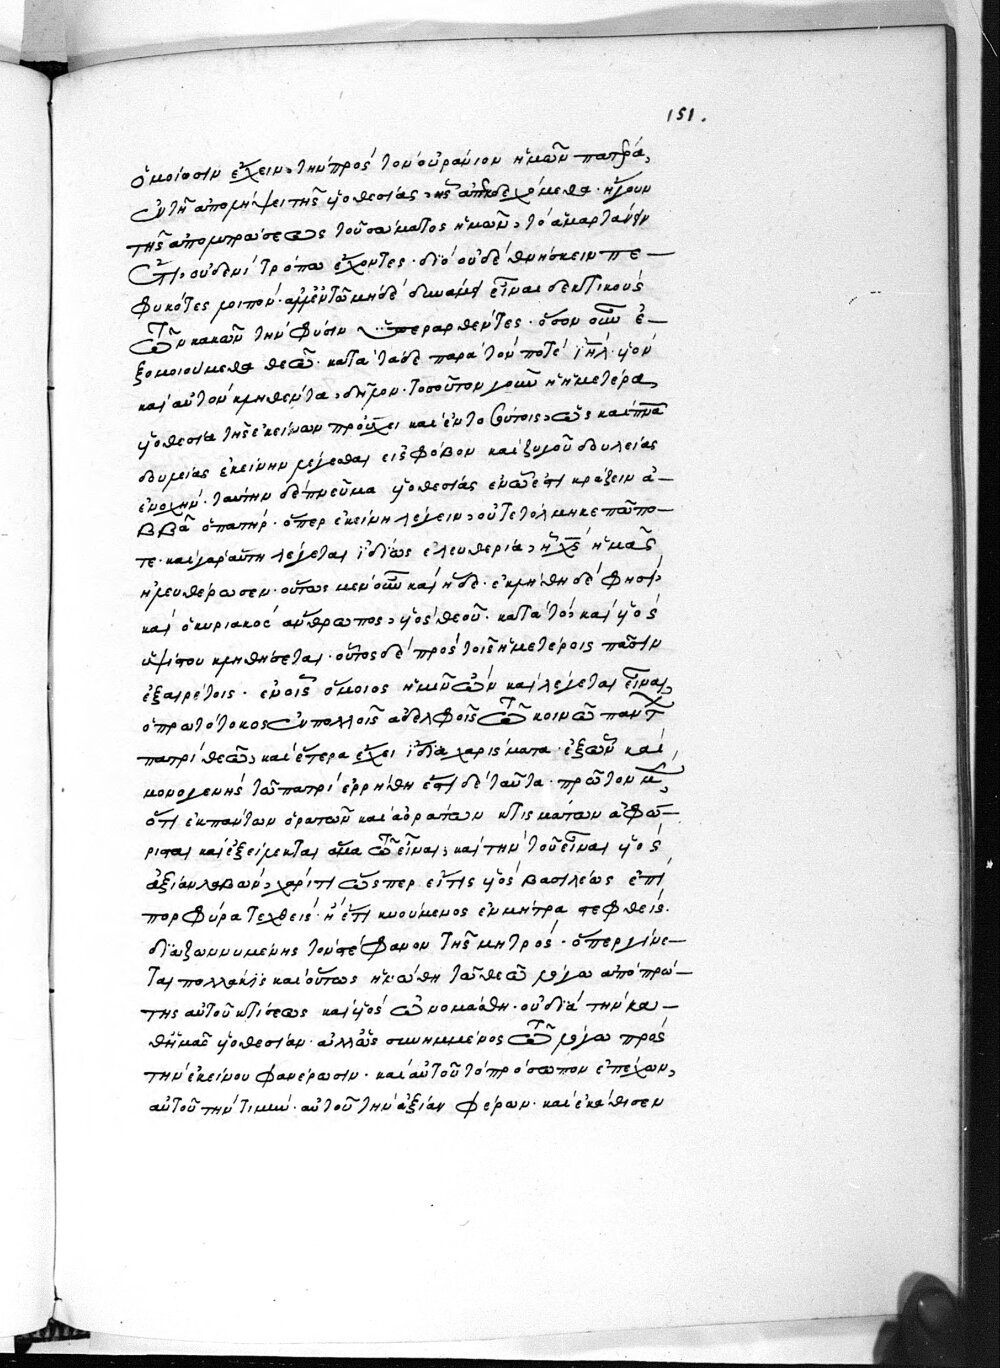 151.
ὁμοίωσιν ἔχειν, τὴν πρὸς τὸν οὐράνιον ἡμῶν πατέρα,
ἐν τῇ ἀπολήψει τῆς υἱοθεσίας, ἧς ἀπεκδεχόμεθα· ἤγουν
τῆς ἀπολυτρώσεως τοῦ σώματος ἡμῶν, τὸ ἁμαρτάνειν
ἔτι, οὐδενὶ τρόπω ἔχοντες· διὸ οὐδὲ θνήσκειν πε-
φυκότες λοιπόν· ἀλλ' ἐν τῶ μηδὲ δυνάμει εἶναι δεκτικοὺς
τῶν κακῶν τὴν φύσιν ὑπεραρθέντες· ὅσον οὖν ἐ-
ξομοιούμεθα θεῶ· κατὰ τάδε παρὰ τὸν ποτὲ ιηλ υἱὸν
καὶ αὐτὸν κληθέντα, δῆλον· τοσοῦτον γοῦν ἡ ἡμετέρα,
υἱοθεσία τῆς ἐκείνων προέχει καὶ ἐν τοιούτοις, ὡς καὶ πνα
δουλείας ἐκείνην λέγεσθαι εἰς φόβον καὶ ζυγοῦ δουλείας
ἐνοχήν· ταύτην δὲ πνεῦμα υἱοθεσίας ἐν ὧ ἔστι κράζειν ἀ-
ββᾶ ὁ πατήρ· ὅπερ ἐκείνη λέγειν, οὐ τετόλμηκε πώπο-
τε· καὶ γὰρ αὕτη λέγεται ἰδίως ἐλευθερία, ἧ χς ἡμᾶς
ἠλευθέρωσεν· οὕτως μὲν οὖν καὶ ἥδε· ἐκλήθη δὲ φησὶ,
καὶ ὁ κυριακὸς ἄνθρωπος, υἱὸς θεοῦ· κατὰ τὸ, καὶ υἱὸς
ὑψίστου κληθήσεται· οὗτος δὲ πρὸς τοῖς ἡμετέροις πᾶσιν
ἐξαιρέτοις· ἐν οἷς ὅμοιος ἡμῖν ὢν καὶ λέγεται εἶναι,
ὁ πρωτότοκος ἐν πολλοῖς ἀδελφοῖς τῶ κοινῶ πάντων
πατρὶ θεῶ, καὶ ἕτερα ἔχει ἴδια χαρίσματα· ἐξ ὧν καὶ
μονογενὴς τῶ πατρὶ ἐρρήθη ἔστι δὲ ταῦτα· πρῶτον μὲν,
ὅτι ἐκ πάντων ὁρατῶν καὶ ἀοράτων κτισμάτων ἀφώ-
ρισται καὶ ἐξείλεκται ἅμα τῶ εἶναι, καὶ τὴν τοῦ εἶναι υἱὸς
ἀξίαν λαβὼν, χάριτι ὥσπερ εἴ τις υἱὸς βασιλέως ἐπὶ
πορφύρα τεχθεὶς· ἢ ἔτι κυούμενος ἐν μήτρα στεφθείς·
διαζωννυμένης τὸν στέφανον τῆς μητρὸς· ὅπερ γίνε-
ται πολλάκις καὶ οὕτως ἡνώθη τῶ θεῶ λόγω ἀπὸ πρώ-
της αὐτοῦ κτίσεως καὶ υἱὸς ὠνομάσθη· οὐ διὰ τὴν κα-
θ' ἡμᾶς υἱοθεσίαν· ἀλλ' ὡς συνημμένος τῶ λόγω πρὸς
τὴν ἐκείνου φανέρωσιν· καὶ αὐτοῦ τὸ πρόσωπον ἐπέχων,
αὐτοῦ τὴν τιμὴν· αὐτοῦ τὴν ἀξίαν φέρων· καὶ ἐκάθισεν